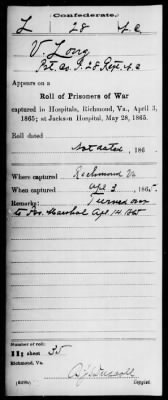 Confederate.
L 28 N.C.
V Long
Pvt. Co. I. 28 Regt. N.C.
Appears on a
Roll of Prisoners of War
captured in Hospitals, Richmond, Va., April 3,
1865; at Jackson Hospital, May 28, 1865.
Roll dated
Not dated, 186 .
Where captured Richmond Va
When captured Apl 3, 1865.
Remarks: Turned over
to Pro. Marshal Apl 14 1865
Number of roll:
11; sheet 35
Richmond, Va.
Copyist.